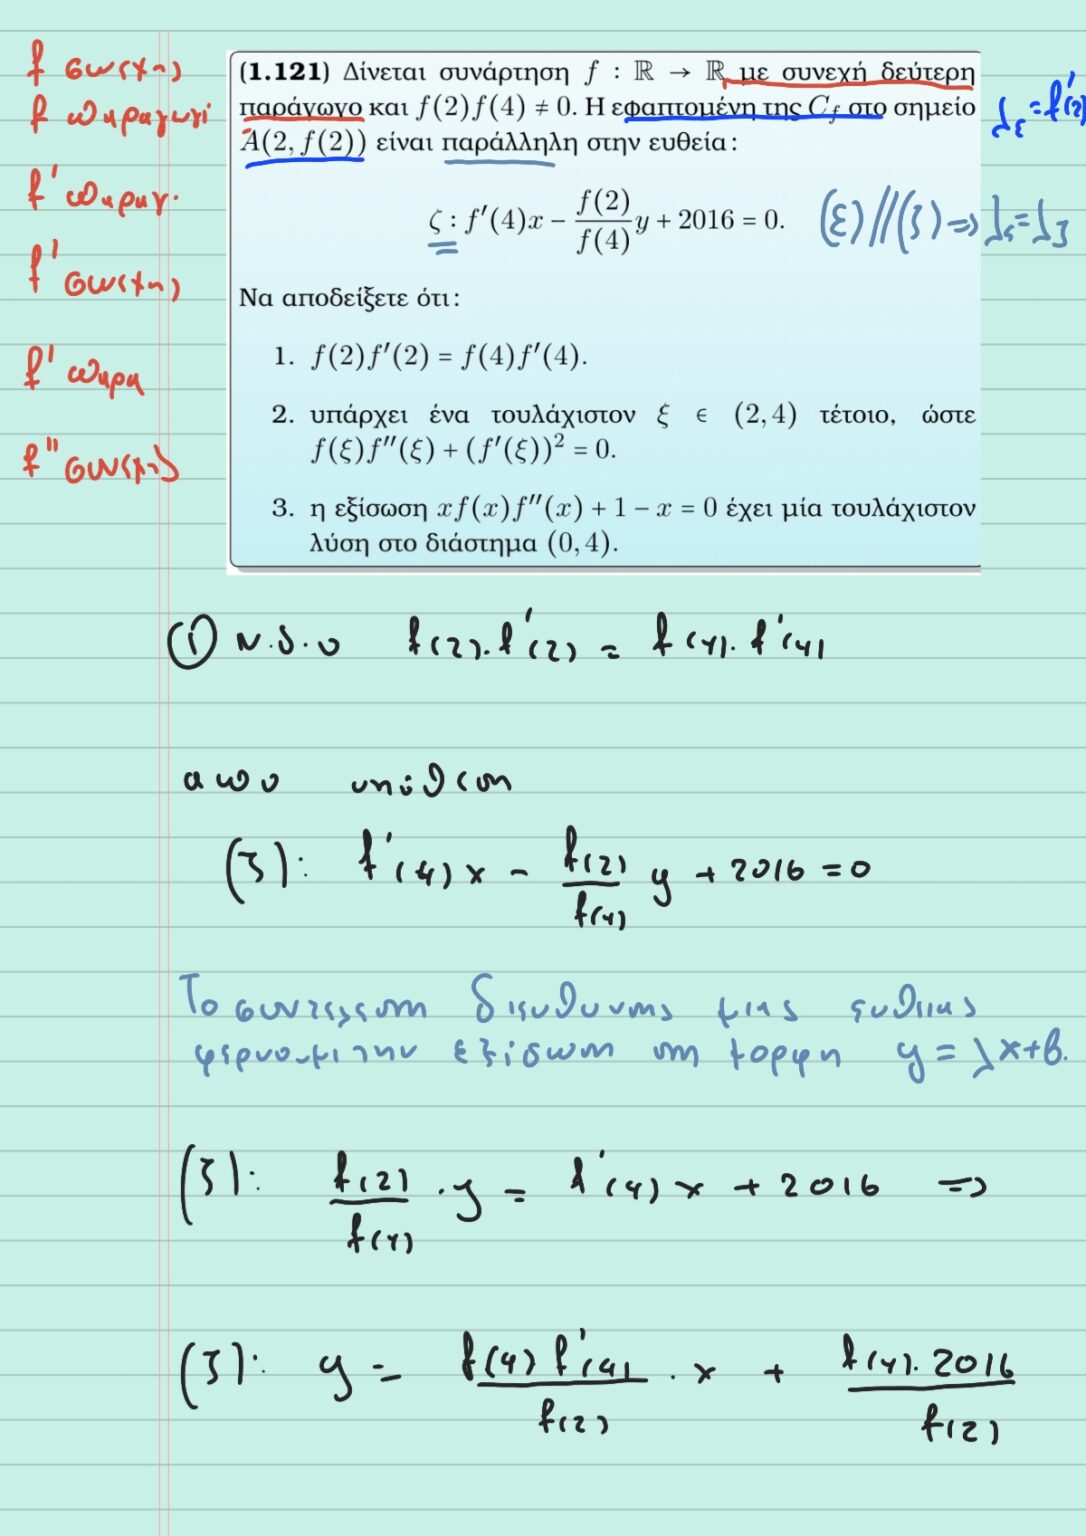 f συνεχης
f παραγωγι
f' παραγ.
f' συνεχης
f' παρα
f'' συνεχης
(1.121) Δίνεται συνάρτηση f : ℝ → ℝ με συνεχή δεύτερη
παράγωγο και f(2)f(4) ≠ 0. Η εφαπτομένη της C_f στο σημείο
A(2, f(2)) είναι παράλληλη στην ευθεία:
λ_ε = f'(2)
ζ : f'(4)x − \frac{f(2)}{f(4)}y + 2016 = 0.
(ε) // (ζ) ⇒ λ_ε = λ_ζ
Να αποδείξετε ότι:
1. f(2)f'(2) = f(4)f'(4).
2. υπάρχει ένα τουλάχιστον ξ ∈ (2, 4) τέτοιο, ώστε
f(ξ)f''(ξ) + (f'(ξ))² = 0.
3. η εξίσωση xf(x)f''(x) + 1 − x = 0 έχει μία τουλάχιστον
λύση στο διάστημα (0, 4).
① ν.δ.ο f(2).f'(2) = f(4).f'(4)
απο υπόθεση
(ζ): f'(4)x - \frac{f(2)}{f(4)} y + 2016 = 0
Το συντελεστη διευθυνσης μιας ευθειας
φερνουμε την εξίσωση στη μορφη y = λx+β.
(ζ): \frac{f(2)}{f(4)} . y = f'(4) x + 2016 ⇒
(ζ): y = \frac{f(4) f'(4)}{f(2)} . x + \frac{f(4). 2016}{f(2)}